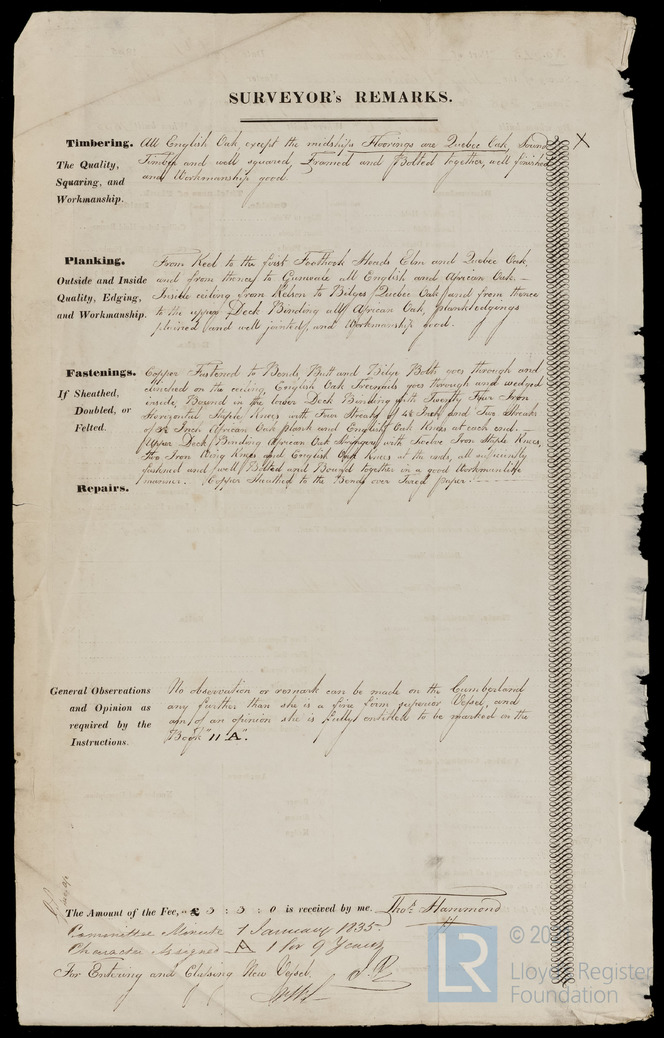 SURVEYOR's REMARKS.
Timbering.
The Quality,
Squaring, and
Workmanship.
All English Oak, except the midship Floorings are Quebec Oak, Sound X
Timber and well squared, Framed and Bolted together, well finished
and Workmanship good.
Planking.
Outside and Inside
Quality, Edging,
and Workmanship.
From Keel to the first Foothook Heads Elm and Quebec Oak,
and from thence to Gunwale all English and African Oak. —
Inside ceiling from Kelson to Bilges Quebec Oak, and from thence
to the upper Deck Binding all African Oak, plank edgings
plained and well jointed, and Workmanship good.
Fastenings.
If Sheathed,
Doubled, or
Felted.
Copper Fastened to Bends, Butt and Bilge Bolts goes through and
clinched on the ceiling, English Oak Treenails goes through and wedged
inside, Bound in the lower Deck Binding with Twenty Four Iron
Horizontal Staple Knees with Four Streaks of 4½ Inch and Two Streaks
of Inch African Oak plank and English Oak Knees at each end. —
Upper Deck Binding African Oak with Twelve Iron Staple Knees,
two Iron Knees and English Oak Knees at the ends, all sufficiently
fastened and well Bolted and Bound together in a good Workmanlike
manner. Copper Sheathed to the Bends over Tared paper.
Repairs.
General Observations
and Opinion as
required by the
Instructions.
No observation or remark can be made on the Cumberland
any further than she is a fine firm superior Vessel, and
am of an opinion she is fully entitled to be marked in the
Book "11 A".
The Amount of the Fee, £ 5 : 5 : 0 is received by me, Thos. Hammond
Committee Minute 1 January 1835.
Character Assigned A 1 for 9 Years
For Entering and Classing New Vessel.
LR
Lloyd's Register
Foundation